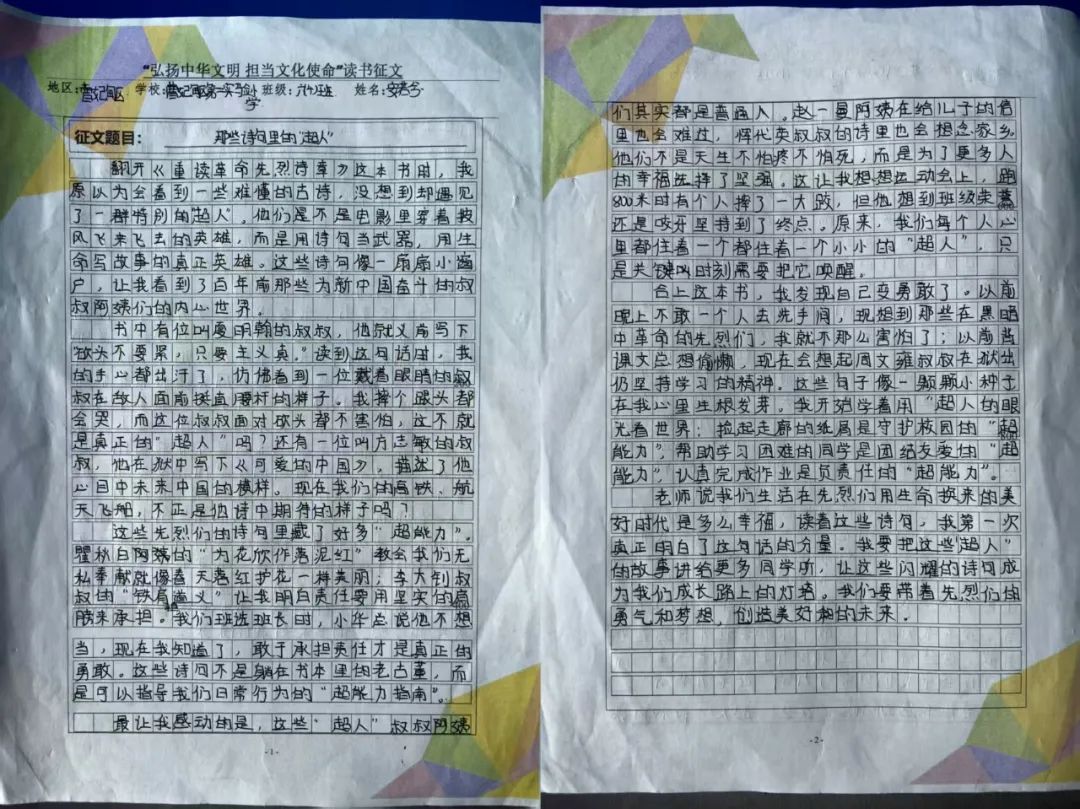 “弘扬中华文明 担当文化使命”读书征文
地区:曹妃甸区 学校:曹妃甸区第一实验小学 班级:六4班 姓名:
征文题目: 那些诗句里的“超人”
翻开《重读革命先烈诗章》这本书时，我
原以为会看到一些难懂的古诗，没想到却遇见
了一群特别的“超人”。他们是不是电影里穿着披
风飞来飞去的英雄，而是用诗句当武器，用生
命写故事的真正英雄。这些诗句像一扇扇小窗
户，让我看到了百年前那些为新中国奋斗的叔
叔阿姨们的内心世界。
书中有位叫夏明翰的叔叔，他就义前写下
“砍头不要紧，只要主义真。”读到这句话时，我
的手心都出汗了，仿佛看到一位戴着眼睛的叔
叔在敌人面前挺直腰杆的样子。我摔个跟头都
会哭，而这位叔叔面对砍头都不害怕，这不就
是真正的“超人”吗？还有一位叫方志敏的叔
叔，他在狱中写下《可爱的中国》，描述了他
心目中未来中国的模样。现在我们的高铁、航
天飞船，不正是他诗中期待的样子吗？
这些先烈们的诗句里藏了好多“超能力”。
瞿秋白阿姨的“为花欣作落泥红”教会我们无
私奉献就像春天落红护花一样美丽；李大钊叔
叔的“铁肩担道义”让我明白责任要用坚实的肩
膀来承担。我们班选班长时，小华总说他不想
当，现在我知道了，敢于承担责任才是真正的
勇敢。这些诗句不是躺在书本里的老古董，而
是可以指导我们日常行为的“超能力指南”。
最让我感动的是，这些“超人”叔叔阿姨
-1-
们其实都是普通人。赵一曼阿姨在给儿子的信
里也会难过，恽代英叔叔的诗里也会想念家乡。
他们不是天生不怕疼不怕死，而是为了更多人
的幸福选择了坚强。这让我想想运动会上，跑
800米时有个人摔了一大跤，但他想到班级荣誉
还是咬牙坚持到了终点。原来，我们每个人心
里都住着一个都住着一个小小的“超人”，只
是关键时刻需要把它唤醒。
合上这本书，我发现自己变勇敢了。以前
晚上不敢一个人去洗手间，现想到那些在黑暗
中革命的先烈们，我就不那么害怕了；以前背
课文总想偷懒，现在会想起周文雍叔叔在狱出
仍坚持学习的精神。这些句子像一颗颗小种子
在我心里生根发芽。我开始学着用“超人的眼
光看世界：捡起走廊的纸屑是守护校园的“超
能力”，帮助学习困难的同学是团结友爱的“超
能力”，认真完成作业是负责任的“超能力”。
老师说我们生活在先烈们用生命换来的美
好时代是多么幸福，读着这些诗句，我第一次
真正明白了这句话的分量。我要把这些“超人”
的故事讲给更多同学听，让这些闪耀的诗句成
为我们成长路上的灯塔。我们要带着先烈们的
勇气和梦想，创造美好的未来。
-2-